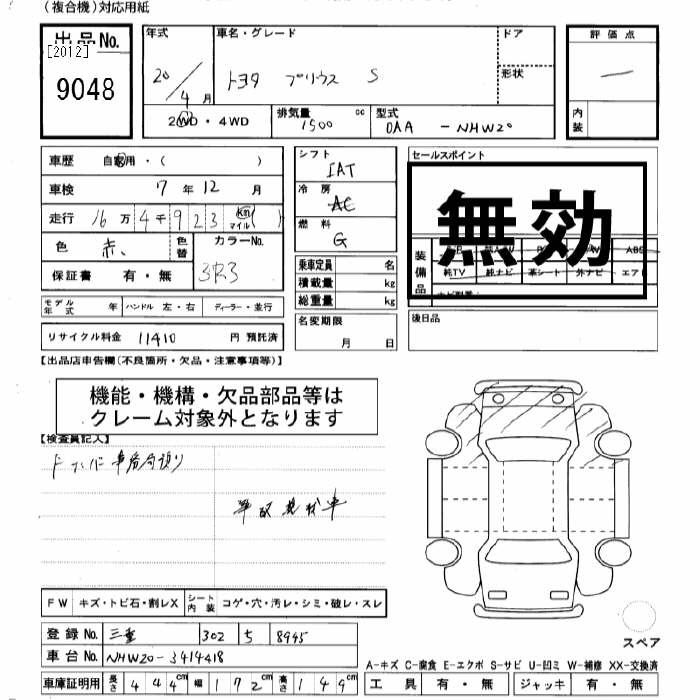 (複合機)対応用紙
出品No.
[2012]
9048
年式
20/4月
車名・グレード
トヨタ プリウス S
ドア
形状
2WD・4WD
排気量 1500 cc
型式 DAA - NHW20
評価点
一
内装
車歴 自家用・( )
車検 7年 12月
走行 16万 4千 923 km マイル( )
色 赤 色替
カラーNo. 3R3
保証書 有・無
モデル年式 年 ハンドル 左・右 ディーラー・並行
リサイクル料金 11410 円 預託済
シフト IAT
冷房 AC
燃料 G
乗車定員 名
積載量 kg
総重量 kg
名変期限 月 日
セールスポイント
無効
装備品
ABS
純TV 純ナビ 革シート 外ナビ エアB
後日品
【出品店車告欄(不良箇所・欠品・注意事項等)】
機能・機構・欠品部品等は
クレーム対象外となります
【検査員記入】
事故現状車
FW キズ・トビ石・割レX シート内装 コゲ・穴・汚レ・シミ・破レ・スレ
登録No. 三重 302 ち 8945
車台No. NHW20-3414418
車庫証明用 長さ 444cm 幅 172cm 高さ 149cm
スペア
A-キズ C-腐食 E-エクボ S-サビ U-凹ミ W-補修 XX-交換済
工具 有・無 ジャッキ 有・無